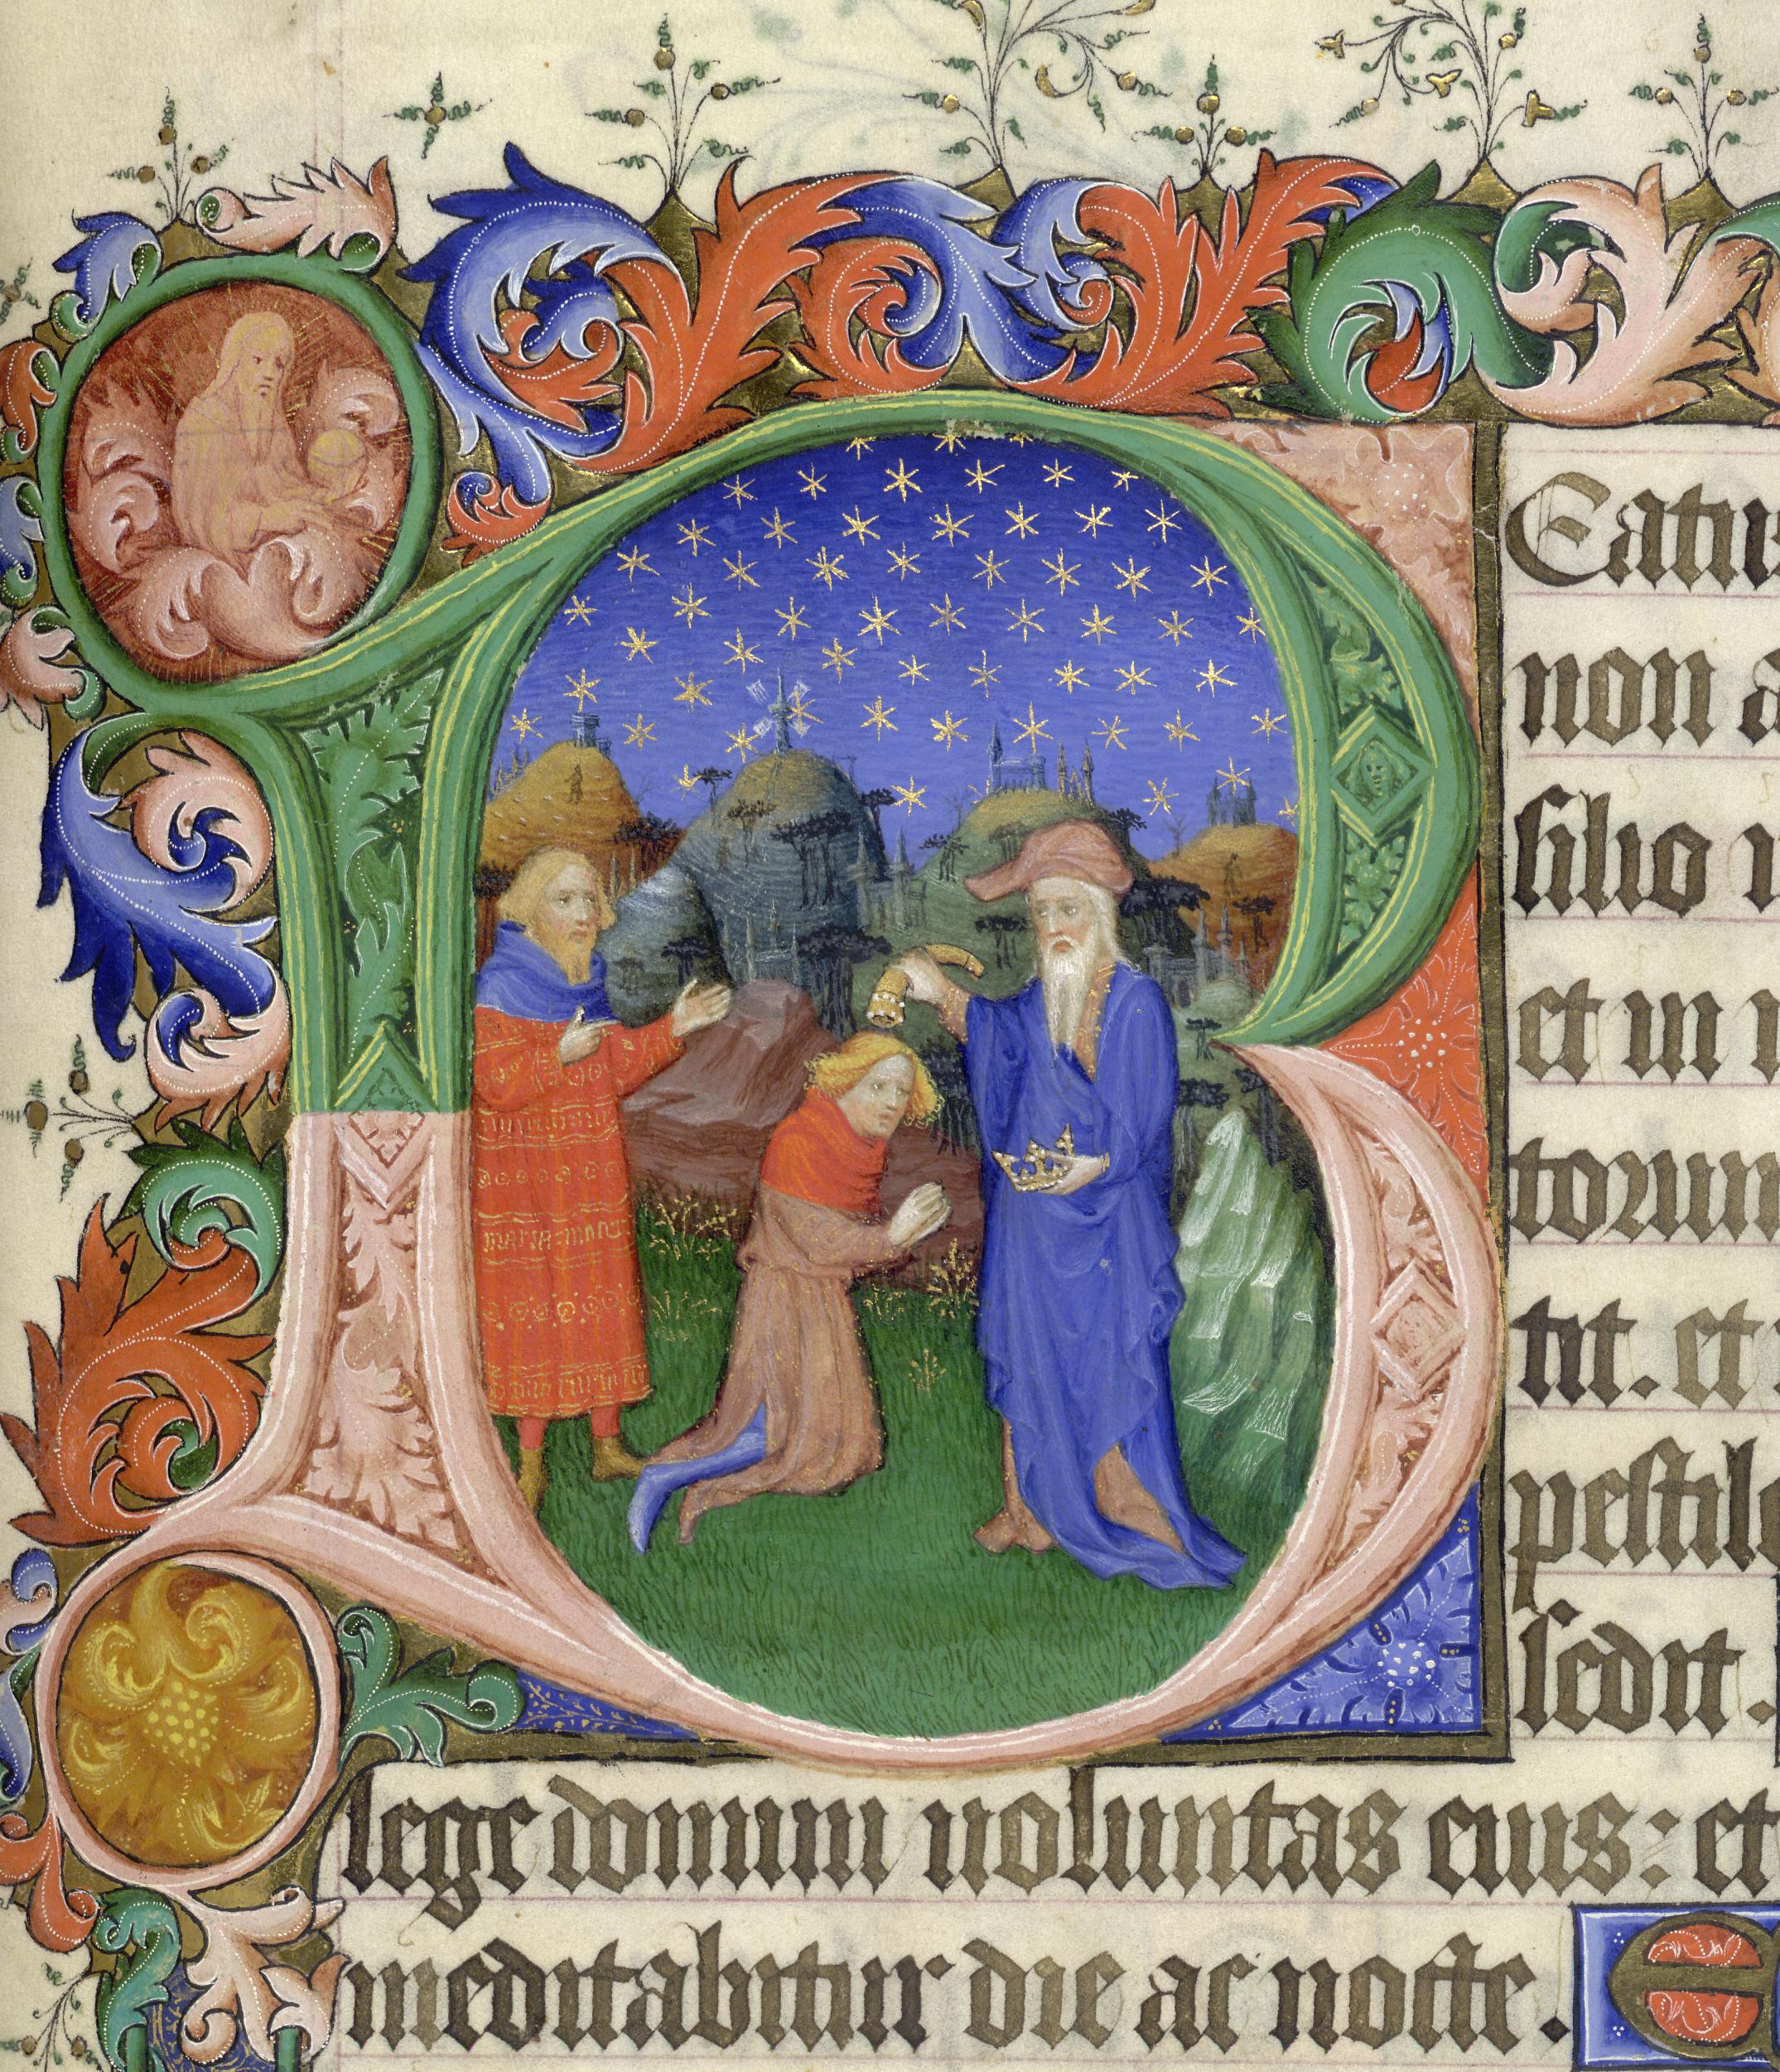 BEatus
non a
silio i
et in
torum
tit. et
pestile
sedit.
lege domini uoluntas eius: et
meditabitur die ac nocte. E